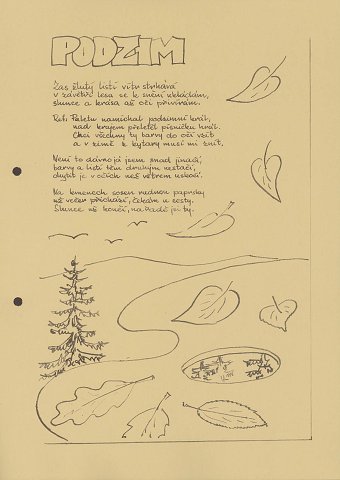 PODZIM
Čas žlutý listí větru strhává
v závětří lesa se k snění ukládám,
slunce a krása až oči přivírám.
Ref: Paletu namíchal podzimní král,
nad krajem přeletěl písničku hrál.
Chci všechny ty barvy do očí vzít
a v zimě z kytary musí mi znít.
Není to dávno já jsem snad jinačí,
barvy a listí těm druhým nestačí,
chytit je v očích než větrem uskočí.
Na kmenech sosen rudnou paprsky
už večer přichází, čekám u cesty.
Slunce už končí, na řadě jsi ty.